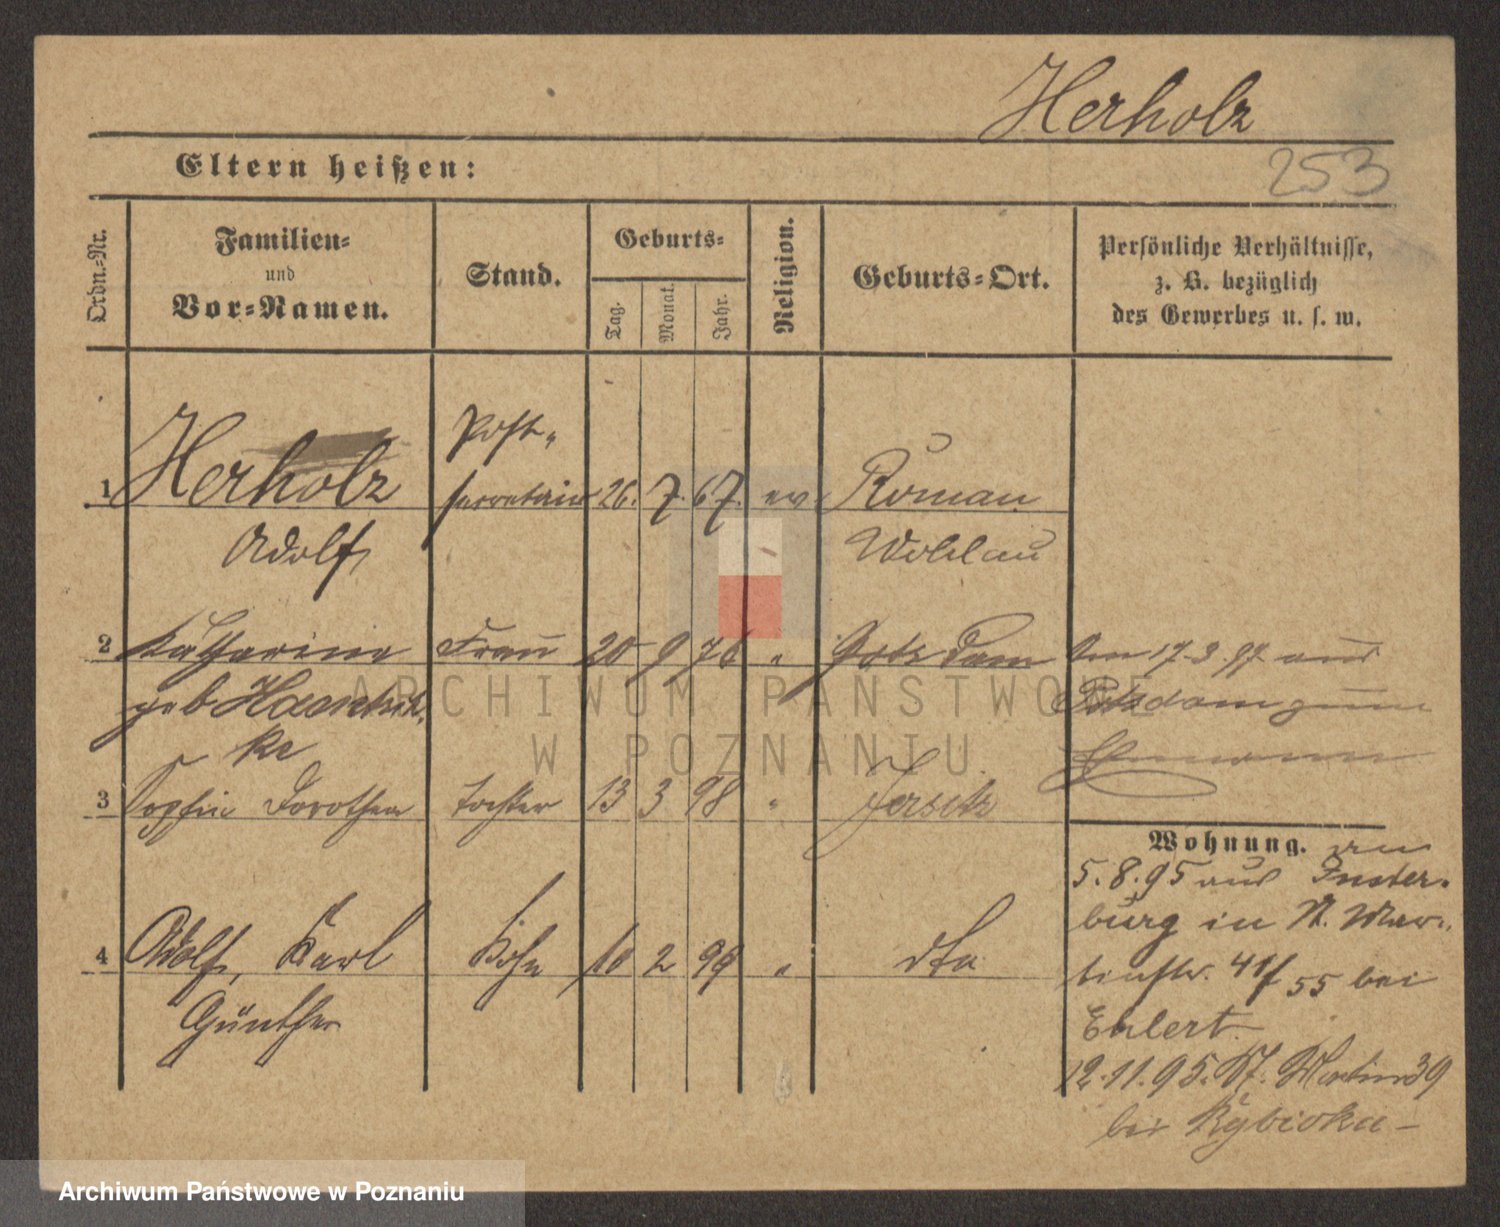 Herholz
253
Eltern heißen:
Ordn.-Nr.
Familien-
und
Vor-Namen.
Stand.
Geburts-
Tag.
Monat.
Jahr.
Religion.
Geburts-Ort.
Persönliche Verhältnisse,
z. B. bezüglich
des Gewerbes u. s. w.
Post-
1 Herholz secretair 26. 7. 67. ev. Roman
Adolf Wohlau
2 Katharina Frau 20 9 76 " Potsdam Am 17.3.97 aus
geb Potsdam zum
ke Ehemann
3 Sophie Dorothea Tochter 13 3 98 " Jersitz
Wohnung. an
5.8.95 aus Inster-
burg in St. Mar-
4 Adolf, Karl Sohn 10 2 99 " dto tinstr. 55 bei
Günther Ehlert
12.11.95. St. Martin 39
bei
ARCHIWUM PAŃSTWOWE
W POZNANIU
Archiwum Państwowe w Poznaniu